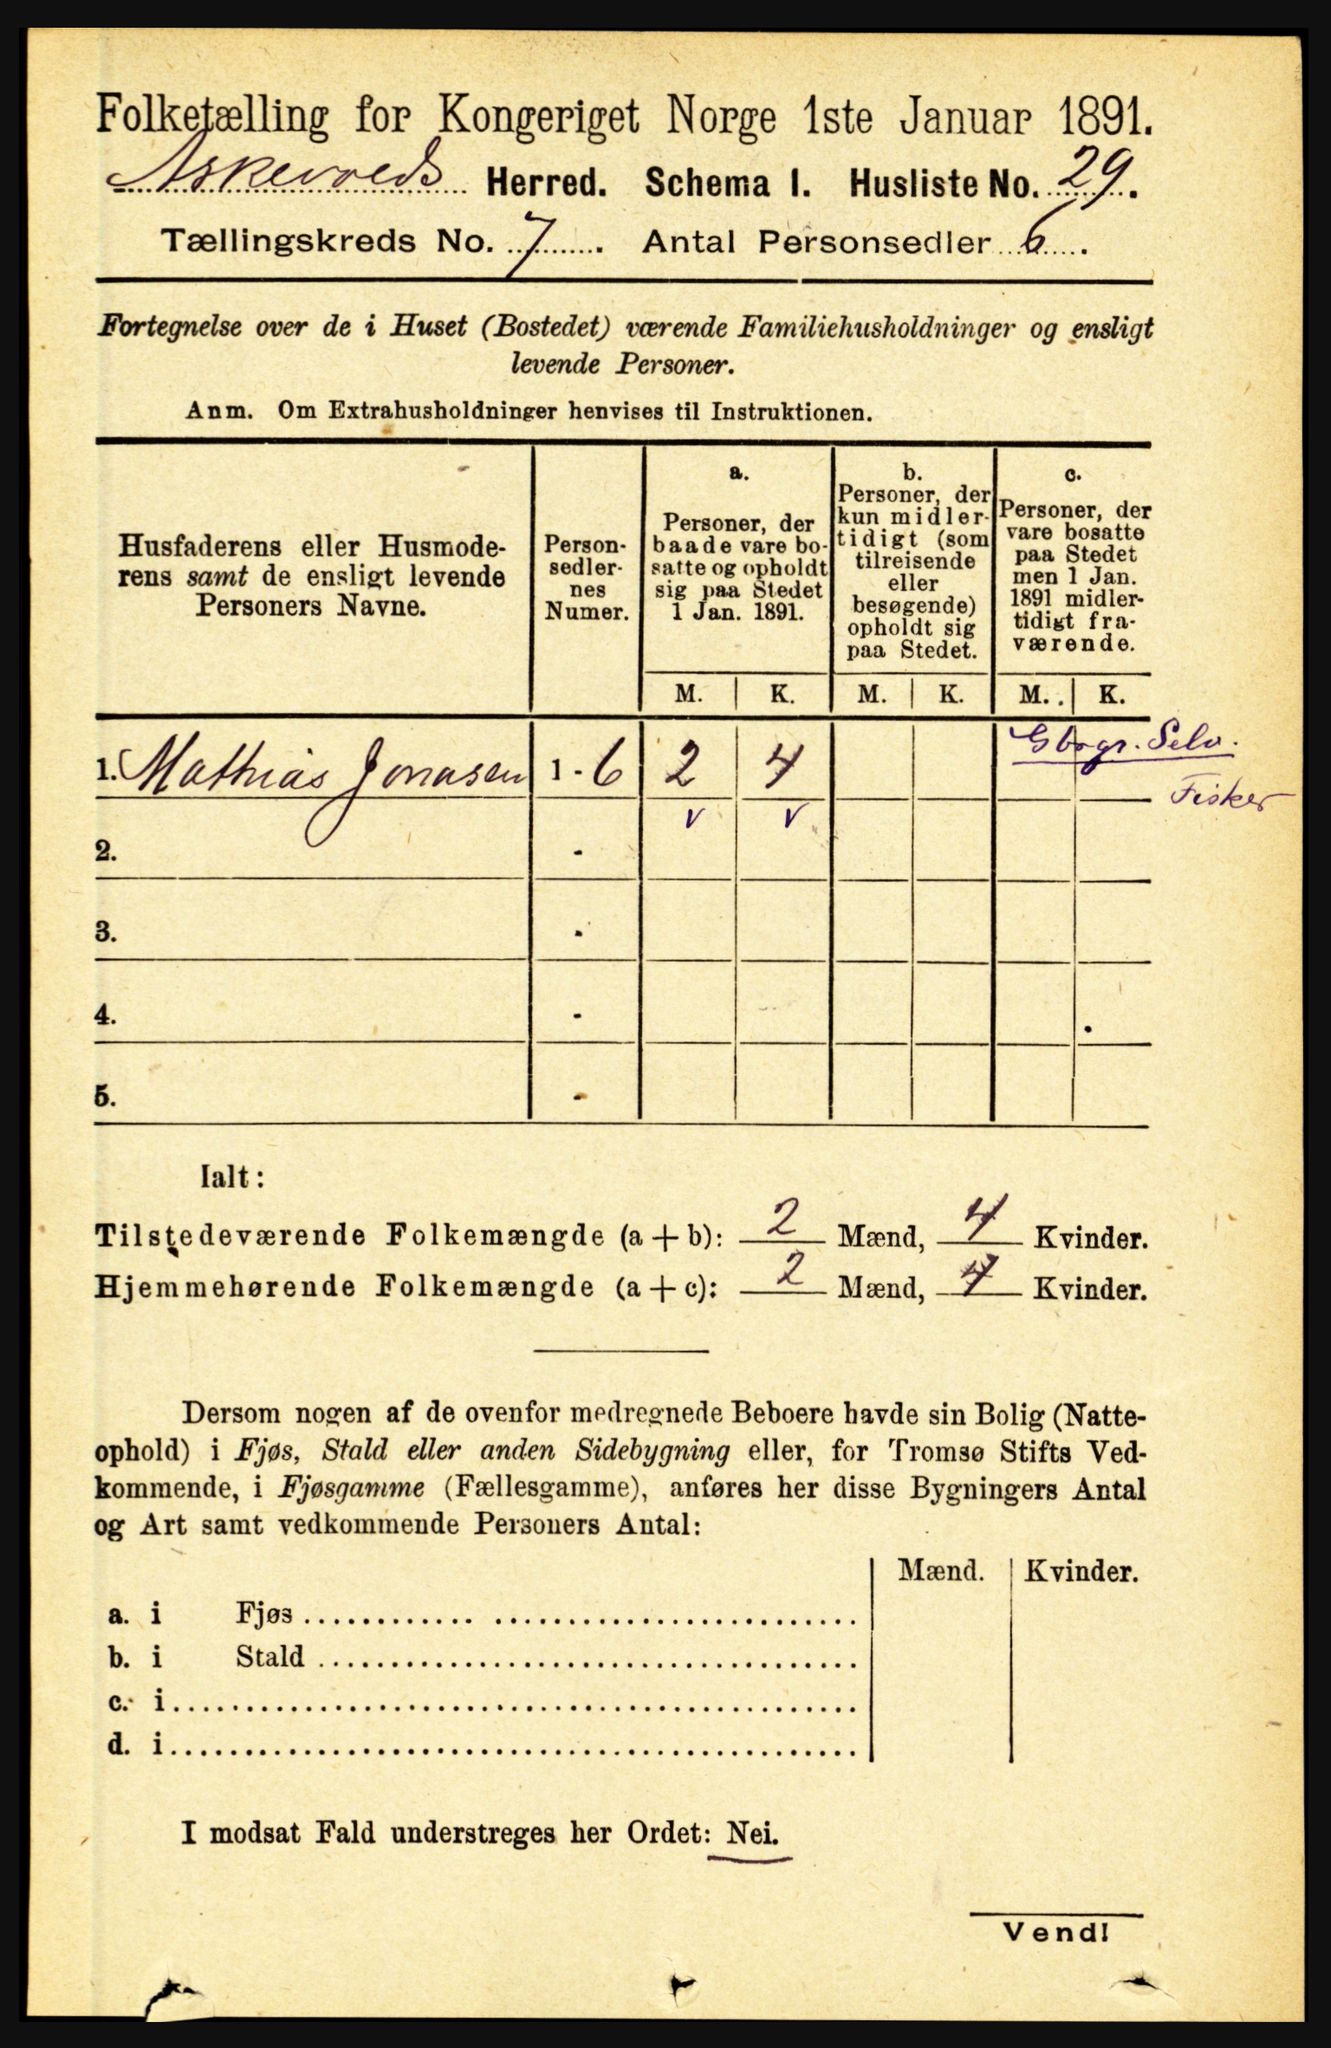 Folketælling for Kongeriget Norge 1ste Januar 1891.
Askevolds Herred. Schema I. Husliste No. 29.
Tællingskreds No. 7. Antal Personsedler 6.
Fortegnelse over de i Huset (Bostedet) værende Familiehusholdninger og ensligt
levende Personer.
Anm. Om Extrahusholdninger henvises til Instruktionen.
Husfaderens eller Husmode-
rens samt de ensligt levende
Personers Navne.
Person-
sedler-
nes
Numer.
a.
Personer, der
baade vare bo-
satte og opholdt
sig paa Stedet
1 Jan. 1891.
b.
Personer, der
kun midler-
tidigt (som
tilreisende
eller
besøgende)
opholdt sig
paa Stedet.
c.
Personer, der
vare bosatte
paa Stedet
men 1 Jan.
1891 midler-
tidigt fra-
værende.
M. K. M. K. M. K.
Gbrgr. Selv.
1. Mathias Jonasen 1 - 6 2 4
Fisker
v v
2. -
3. -
4. -
5. -
Ialt:
Tilstedeværende Folkemængde (a + b): 2 Mænd, 4 Kvinder.
Hjemmehørende Folkemængde (a + c): 2 Mænd, 4 Kvinder.
Dersom nogen af de ovenfor medregnede Beboere havde sin Bolig (Natte-
ophold) i Fjøs, Stald eller anden Sidebygning eller, for Tromsø Stifts Ved-
kommende, i Fjøsgamme (Fællesgamme), anføres her disse Bygningers Antal
og Art samt vedkommende Personers Antal:
Mænd. Kvinder.
a. i Fjøs
b. i Stald
c. i
d. i
I modsat Fald understreges her Ordet: Nei.
Vend!